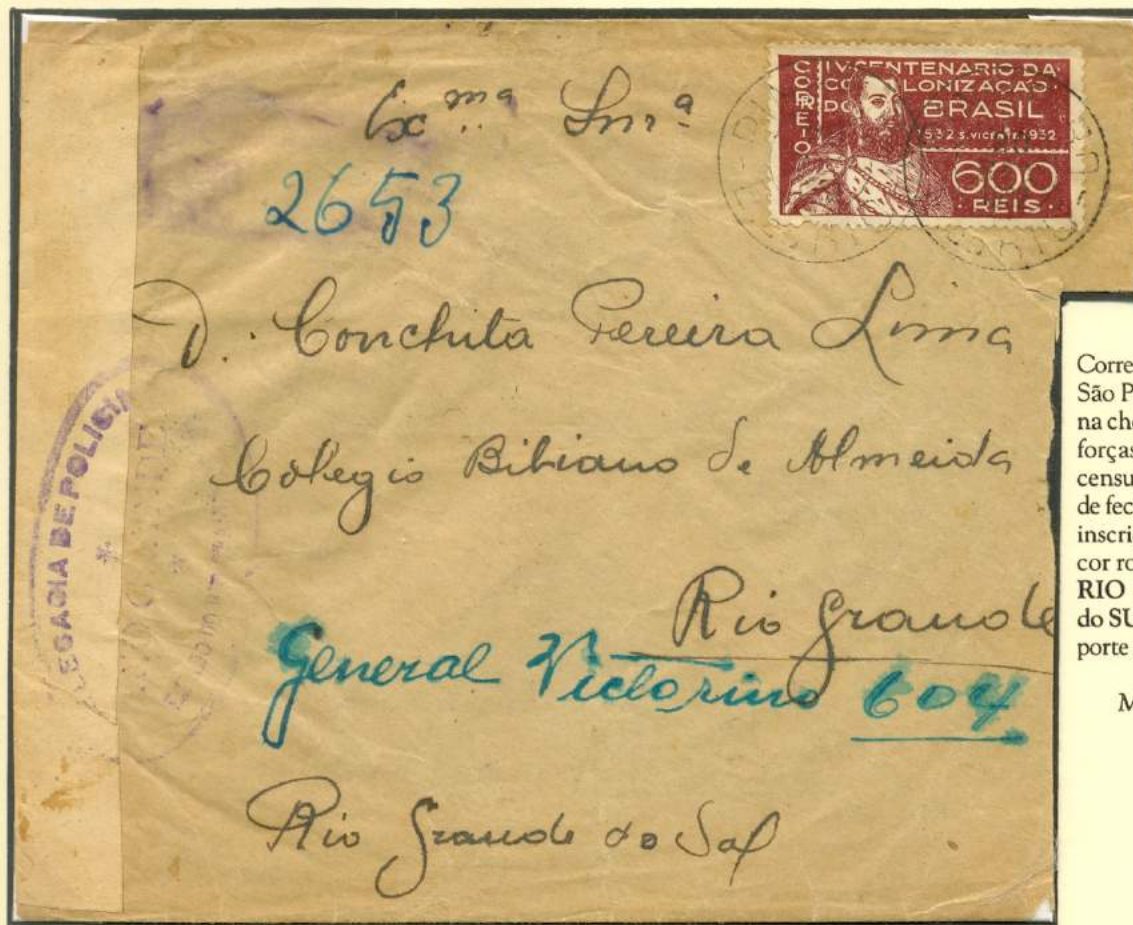 CORREIO
IV CENTENARIO DA
COLONIZAÇÃO
DO BRASIL
1532 S. VICENTE 1932
600
REIS
Exmª Snrª
2653
D. Conchita Pereira Lima
Colegio Bibiano de Almeida
Rio Grande
General Victorino 604
Rio Grande do Sul
EGACIA DE POLICIA
RIO GRANDE
Corre
São P
na che
forças
censu
de fec
inscri
cor ro
RIO
do SU
porte
M